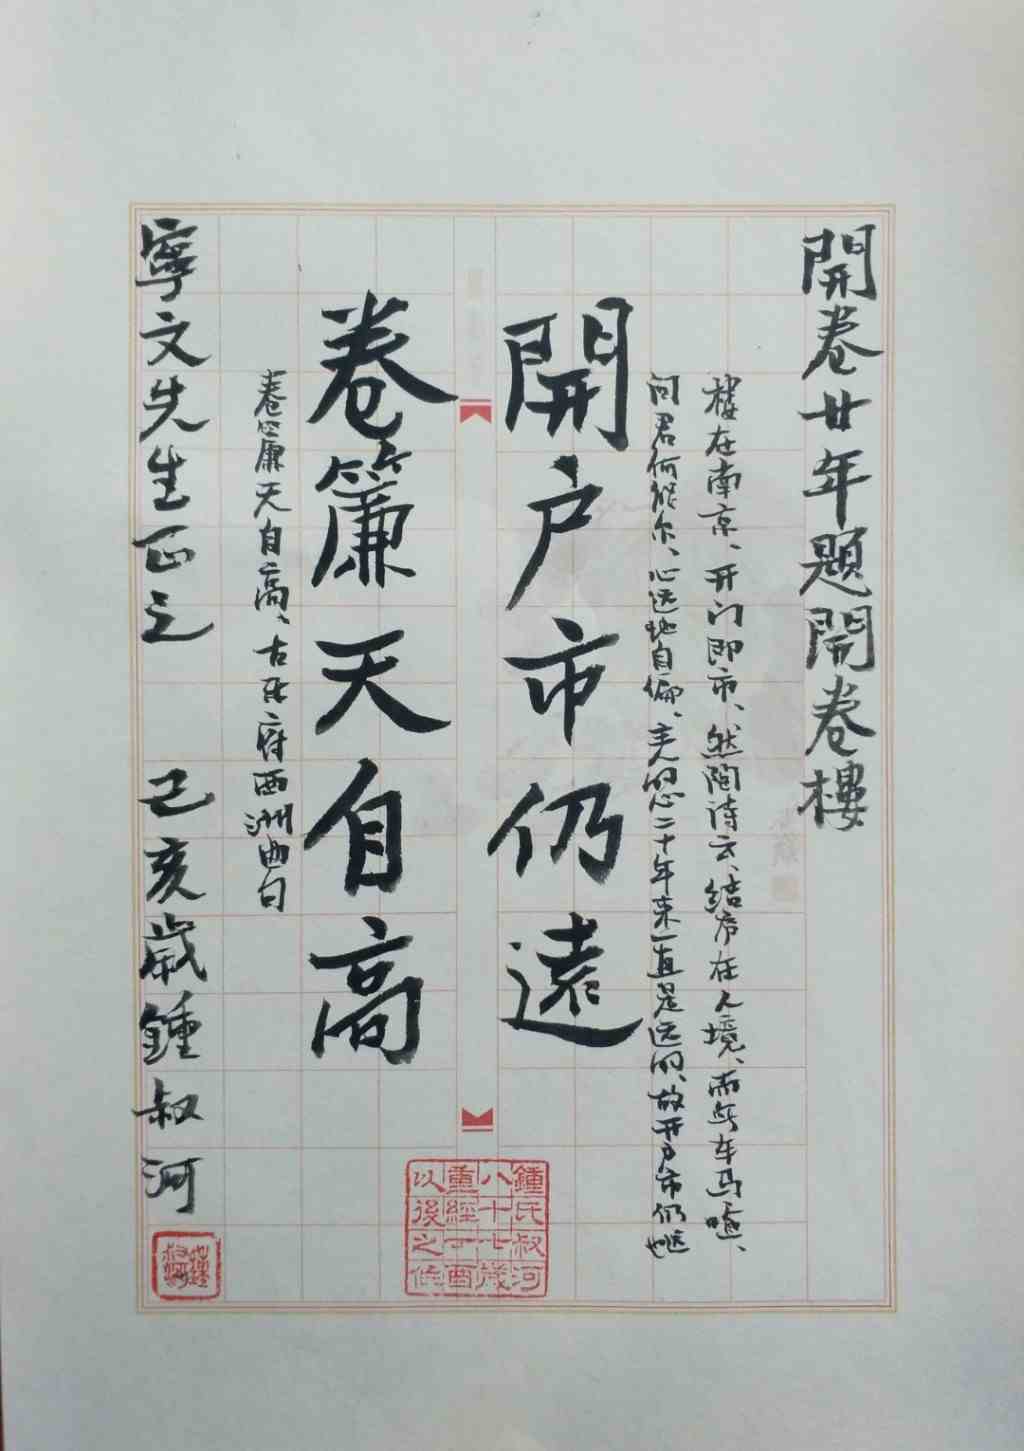 開卷廿年題開卷樓
樓在南京、开门即市、然陶诗云、结庐在人境、而无车马喧、
问君何能尔、心远地自偏、主人的心二十年来一直是远的、故开户市仍远也
開户市仍遠
卷簾天自高
卷簾天自高、古乐府西洲曲句
寧文先生正之 己亥歲鍾叔河
鍾氏叔河
八十七歲
重經丁酉
以後之作